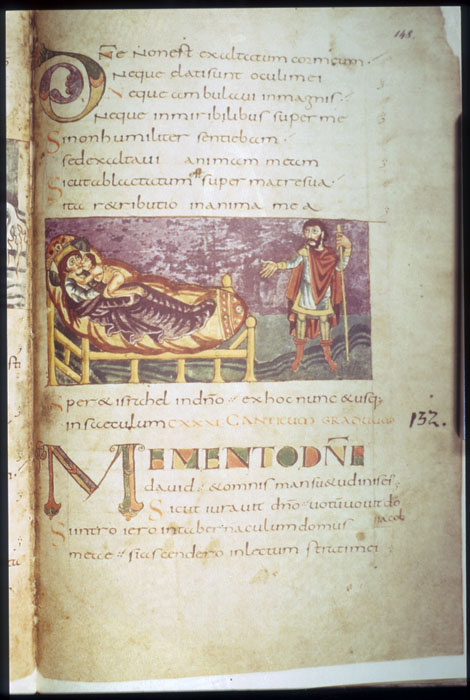 148.
DNE Non est exaltatum cor meum
Neque elati sunt oculi mei
Neque ambulavi in magnis
Neque in miribilibus super me
Si non humiliter sentiebam
sed exaltavi animam meam
Sicut ablactatum est super matre sua
ita retributio in anima mea
per& israhel in dno ex hoc nunc & usq;
in saeculum CXXXI CANTICUM GRADUUM
132.
MEMENTO DNE
david & omnis mansu&udinis ei
Sicut iuravit dno votum vovit do
iacob
Si intro iero in tabernaculum domus
meae si ascendero in lectum strati mei